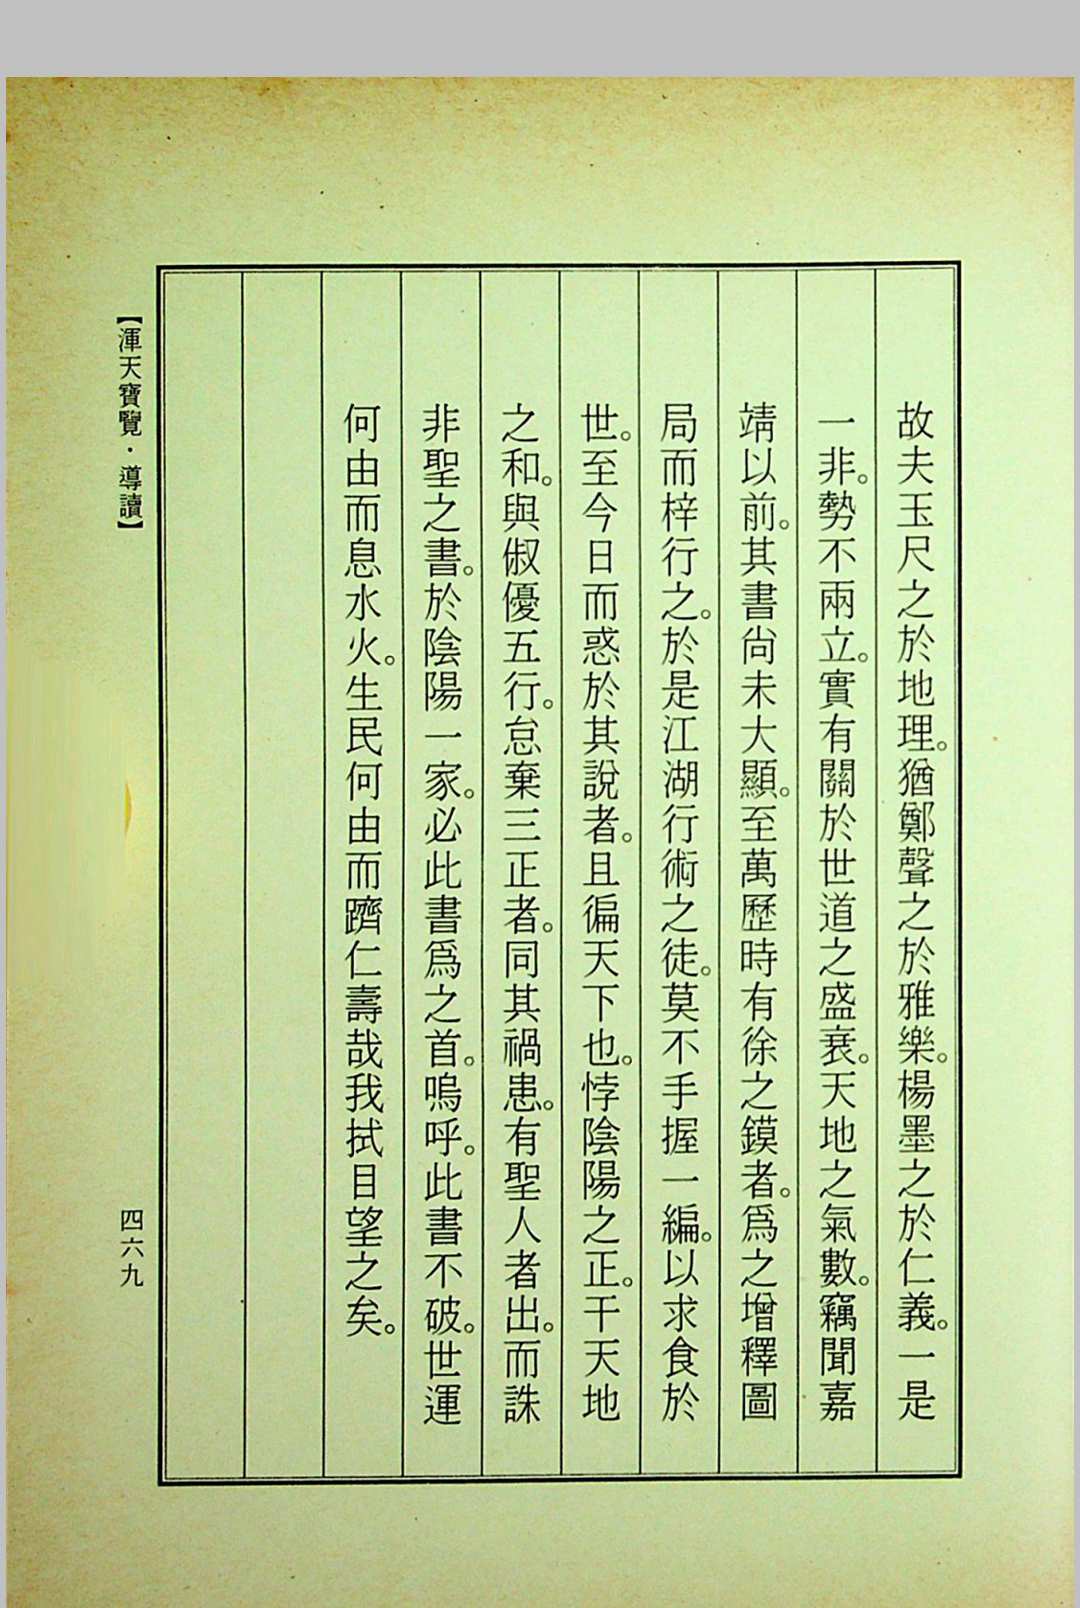 故夫玉尺之於地理。猶鄭聲之於雅樂。楊墨之於仁義。一是
一非。勢不兩立。實有關於世道之盛衰。天地之氣數。竊聞嘉
靖以前。其書尙未大顯。至萬歷時有徐之鏌者。爲之增釋圖
局而梓行之。於是江湖行術之徒。莫不手握一編。以求食於
世。至今日而惑於其說者。且徧天下也。悖陰陽之正。干天地
之和。與俶優五行。怠棄三正者。同其禍患。有聖人者出。而誅
非聖之書。於陰陽一家。必此書爲之首。嗚呼。此書不破。世運
何由而息水火。生民何由而躋仁壽哉我拭目望之矣。
【渾天寶覽·導讀】
四六九